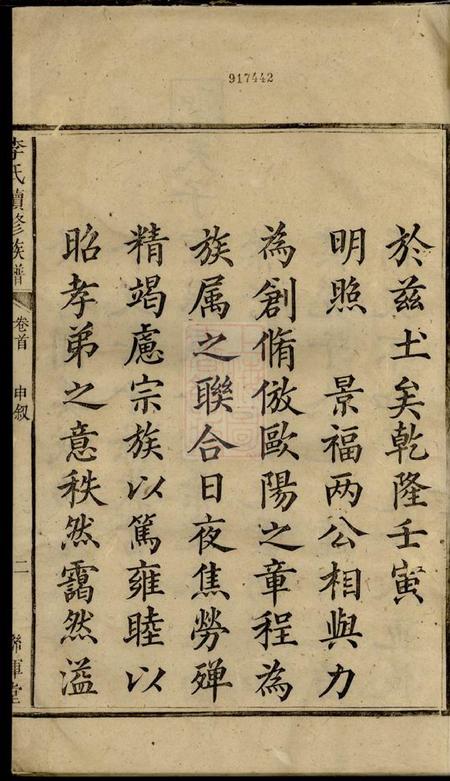 917442
於兹土矣乾隆壬寅
明照 景福两公相與力
為創脩倣歐陽之章程為
族属之聯合日夜焦勞殫
精竭慮宗族以篤雍睦以
昭孝弟之意秩然靄然溢
李氏續修族譜 卷首 申叙 二